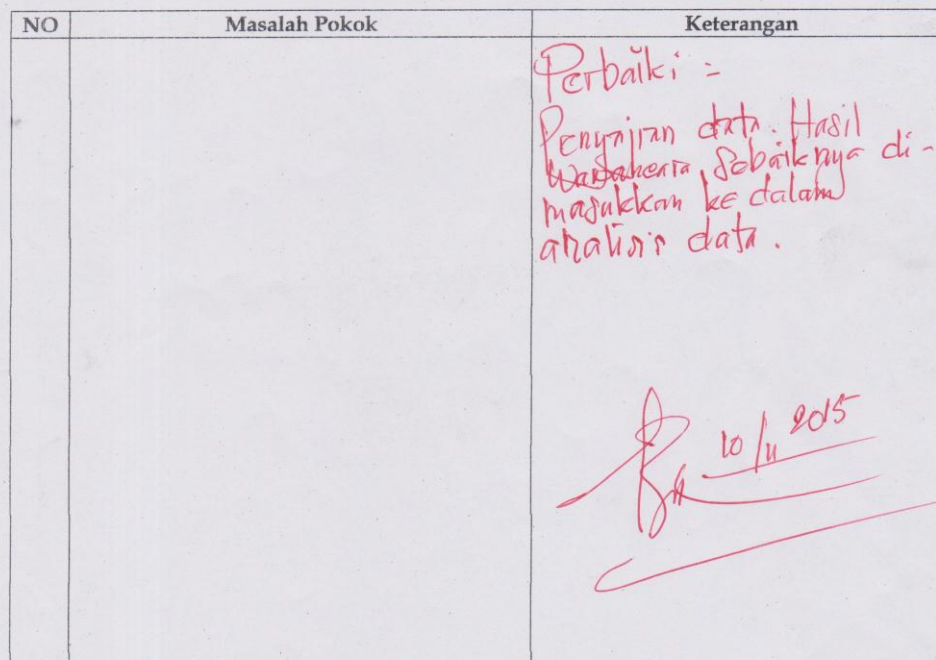 NO Masalah Pokok Keterangan
Perbaiki :
Penyajian data. Hasil
Wawancara Sebaiknya di-
masukkan ke dalam
analisis data.
10/11 2015